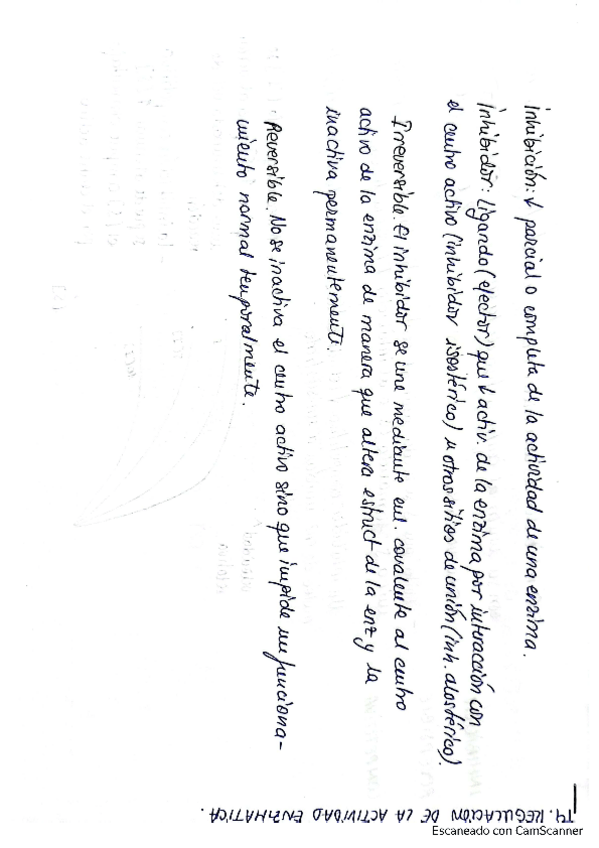 T4. REGULACIÓN DE LA ACTIVIDAD ENZIMÁTICA.
Inhibición: ↓ parcial o completa de la actividad de una enzima.
Inhibidor: Ligando (efector) que ↓ activ. de la enzima por interacción con
el centro activo (inhibidor isostérico) u otros sitios de unión (inh. alostérico).
Irreversible. El inhibidor se une mediante enl. covalente al centro
activo de la enzima de manera que altera estruct de la enz y la
inactiva permanentemente.
Reversible. No se inactiva el centro activo sino que impide un funciona-
miento normal temporalmente.
Escaneado con CamScanner